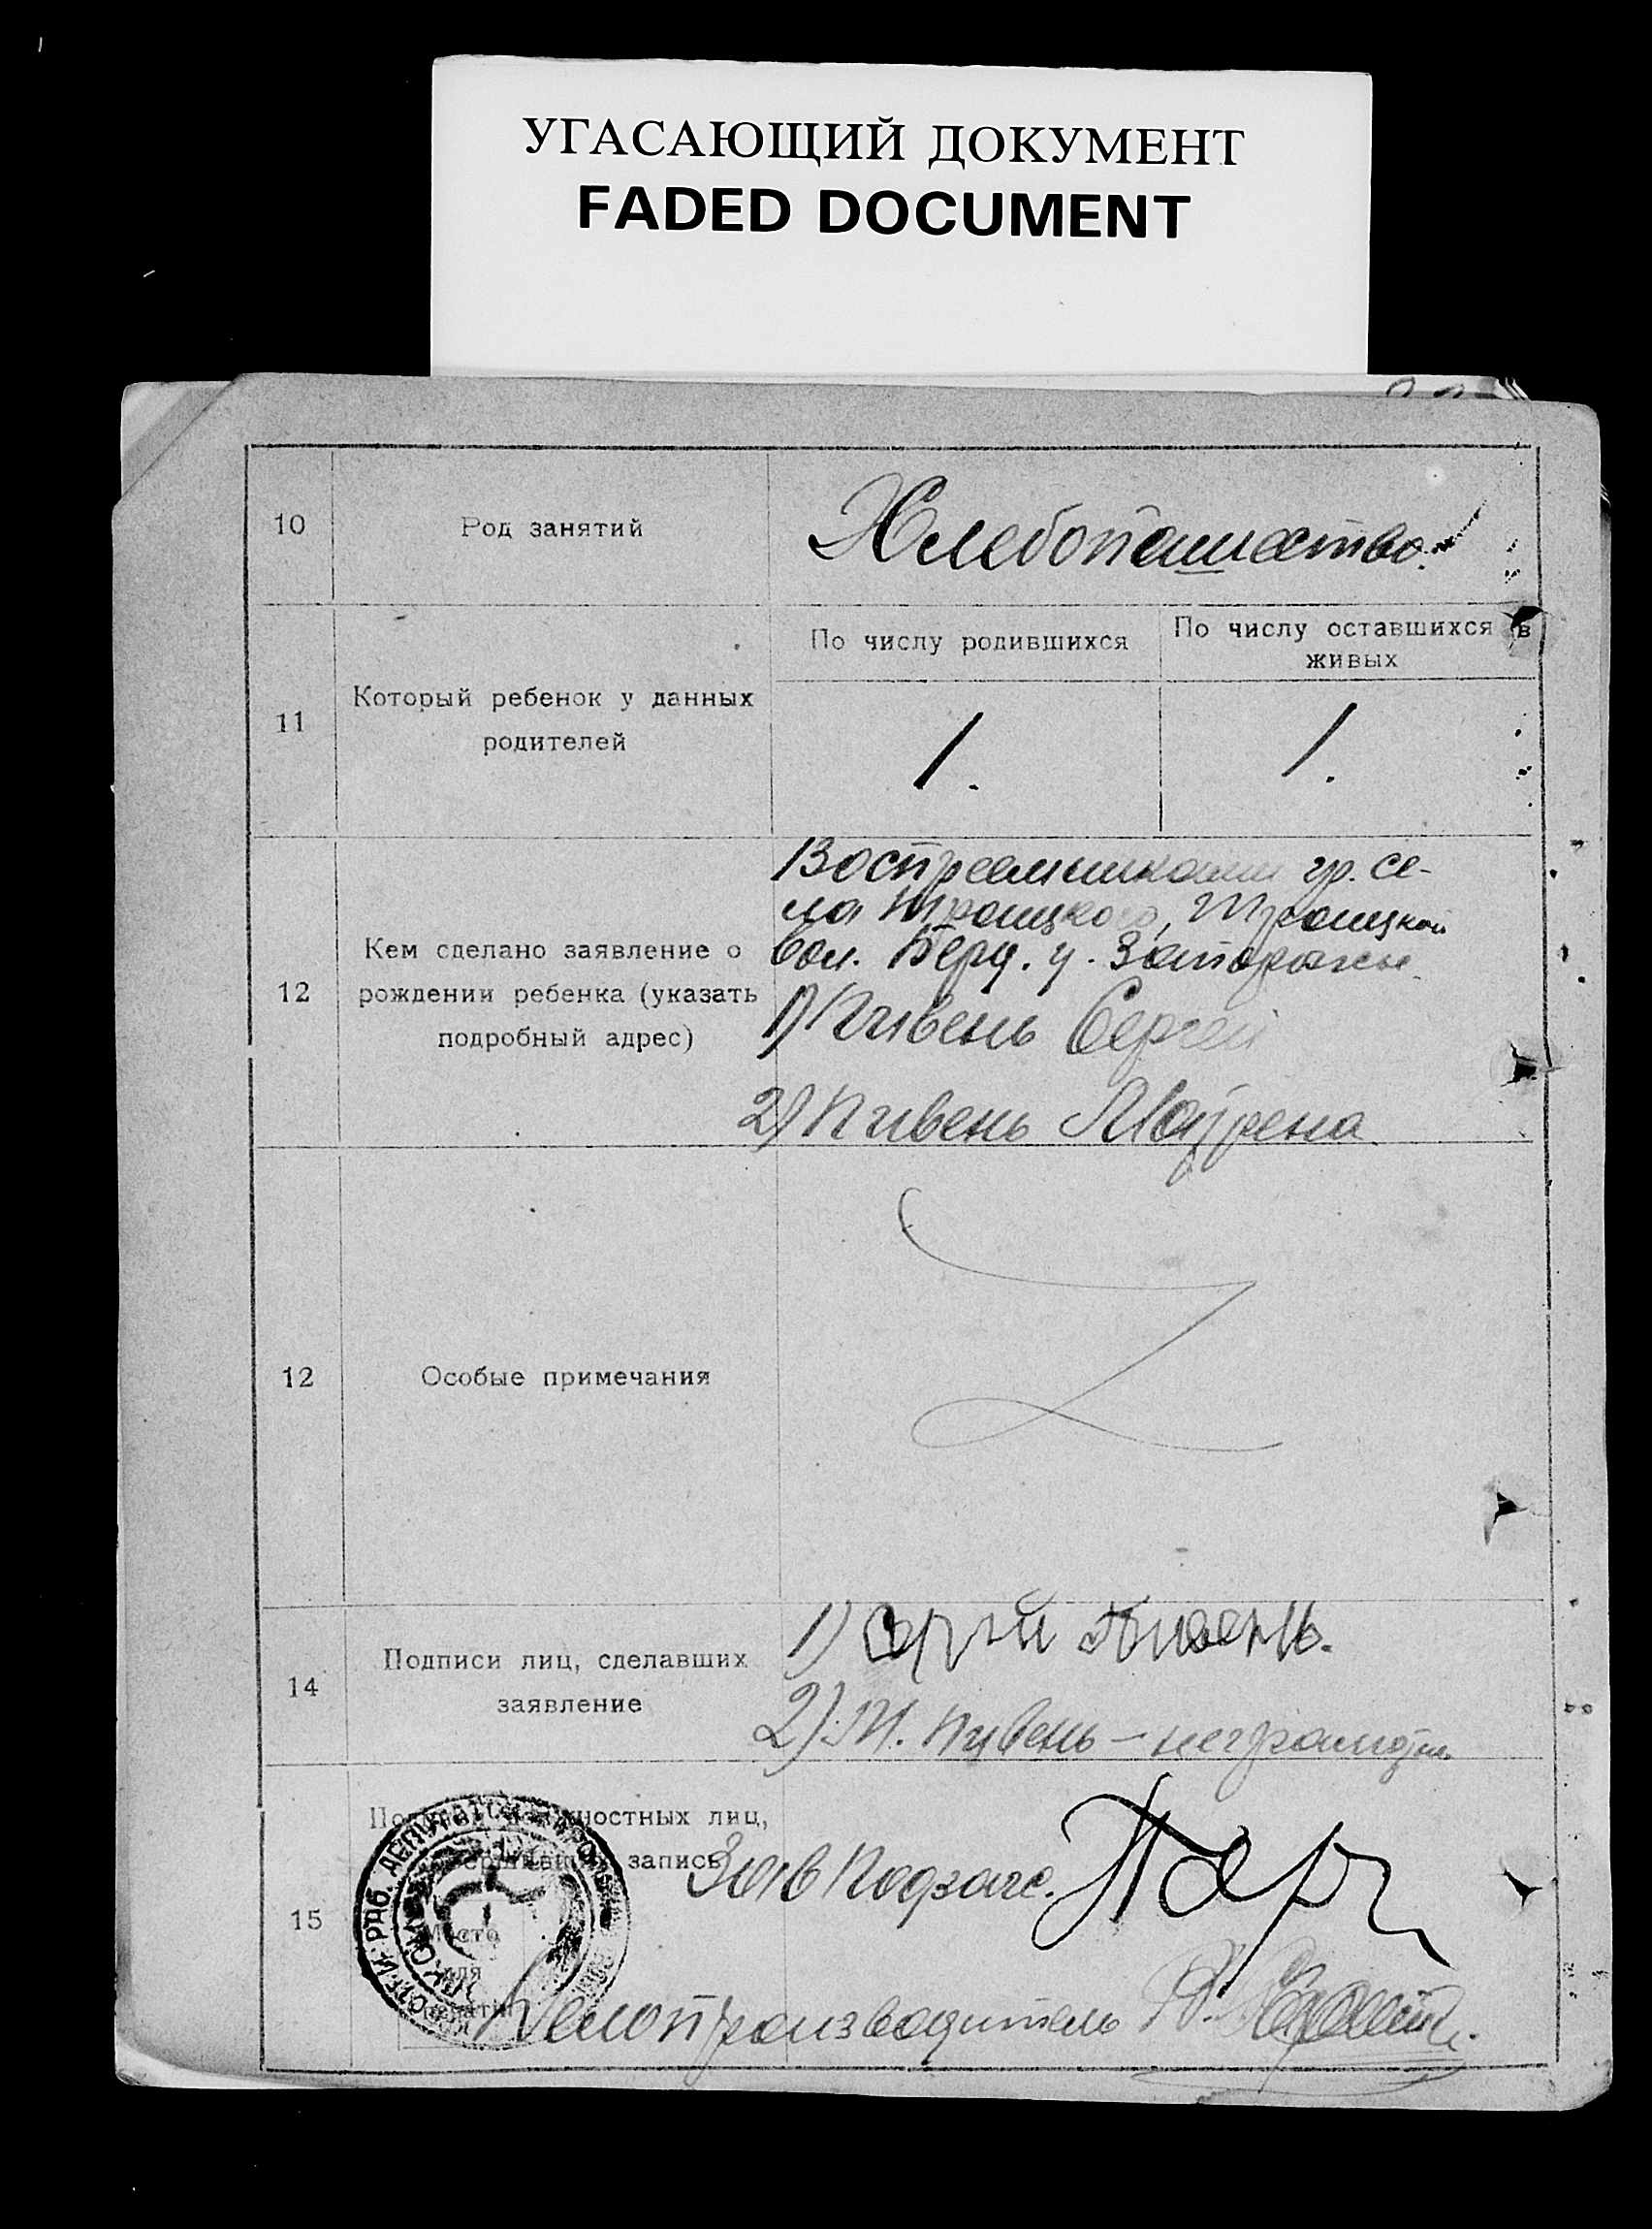 УГАСАЮЩИЙ ДОКУМЕНТ
FADED DOCUMENT
10
Род занятий
Хлебопашество.
11
Который ребенок у данных
родителей
По числу родившихся
По числу оставшихся в
живых
1.
1.
12
Кем сделано заявление о
рождении ребенка (указать
подробный адрес)
Восприемниками гр. се-
ла Троицкого, Троицкой
вол. Берд. у. Запорожск.
1) Пивень Сергей
2) Пивень Мотрена
12
Особые примечания
14
Подписи лиц, сделавших
заявление
1) Сергей Пивень.
2) М. Пивень – неграмотн.
15
должностных лиц,
запись
Место
для
печати
КРЕСТ. И РАБ. ДЕПУТАТОВ
Зав Подзагс.
Делопроизводитель